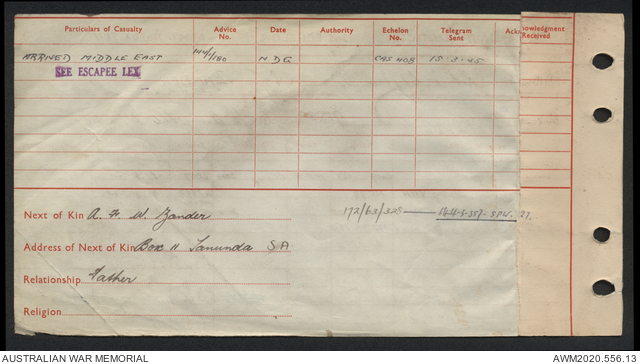 Particulars of Casualty Advice No. Date Authority Echelon No. Telegram Sent Ack nowledgment Received
ARRIVED MIDDLE EAST 1180 N D G CAS 15-3-45
SEE ESCAPEE LEX
Next of Kin A. W. Zander 172/63/328
Address of Next of Kin Box 11 Tanunda S A
Relationship Father
Religion
AUSTRALIAN WAR MEMORIAL AWM2020.556.13